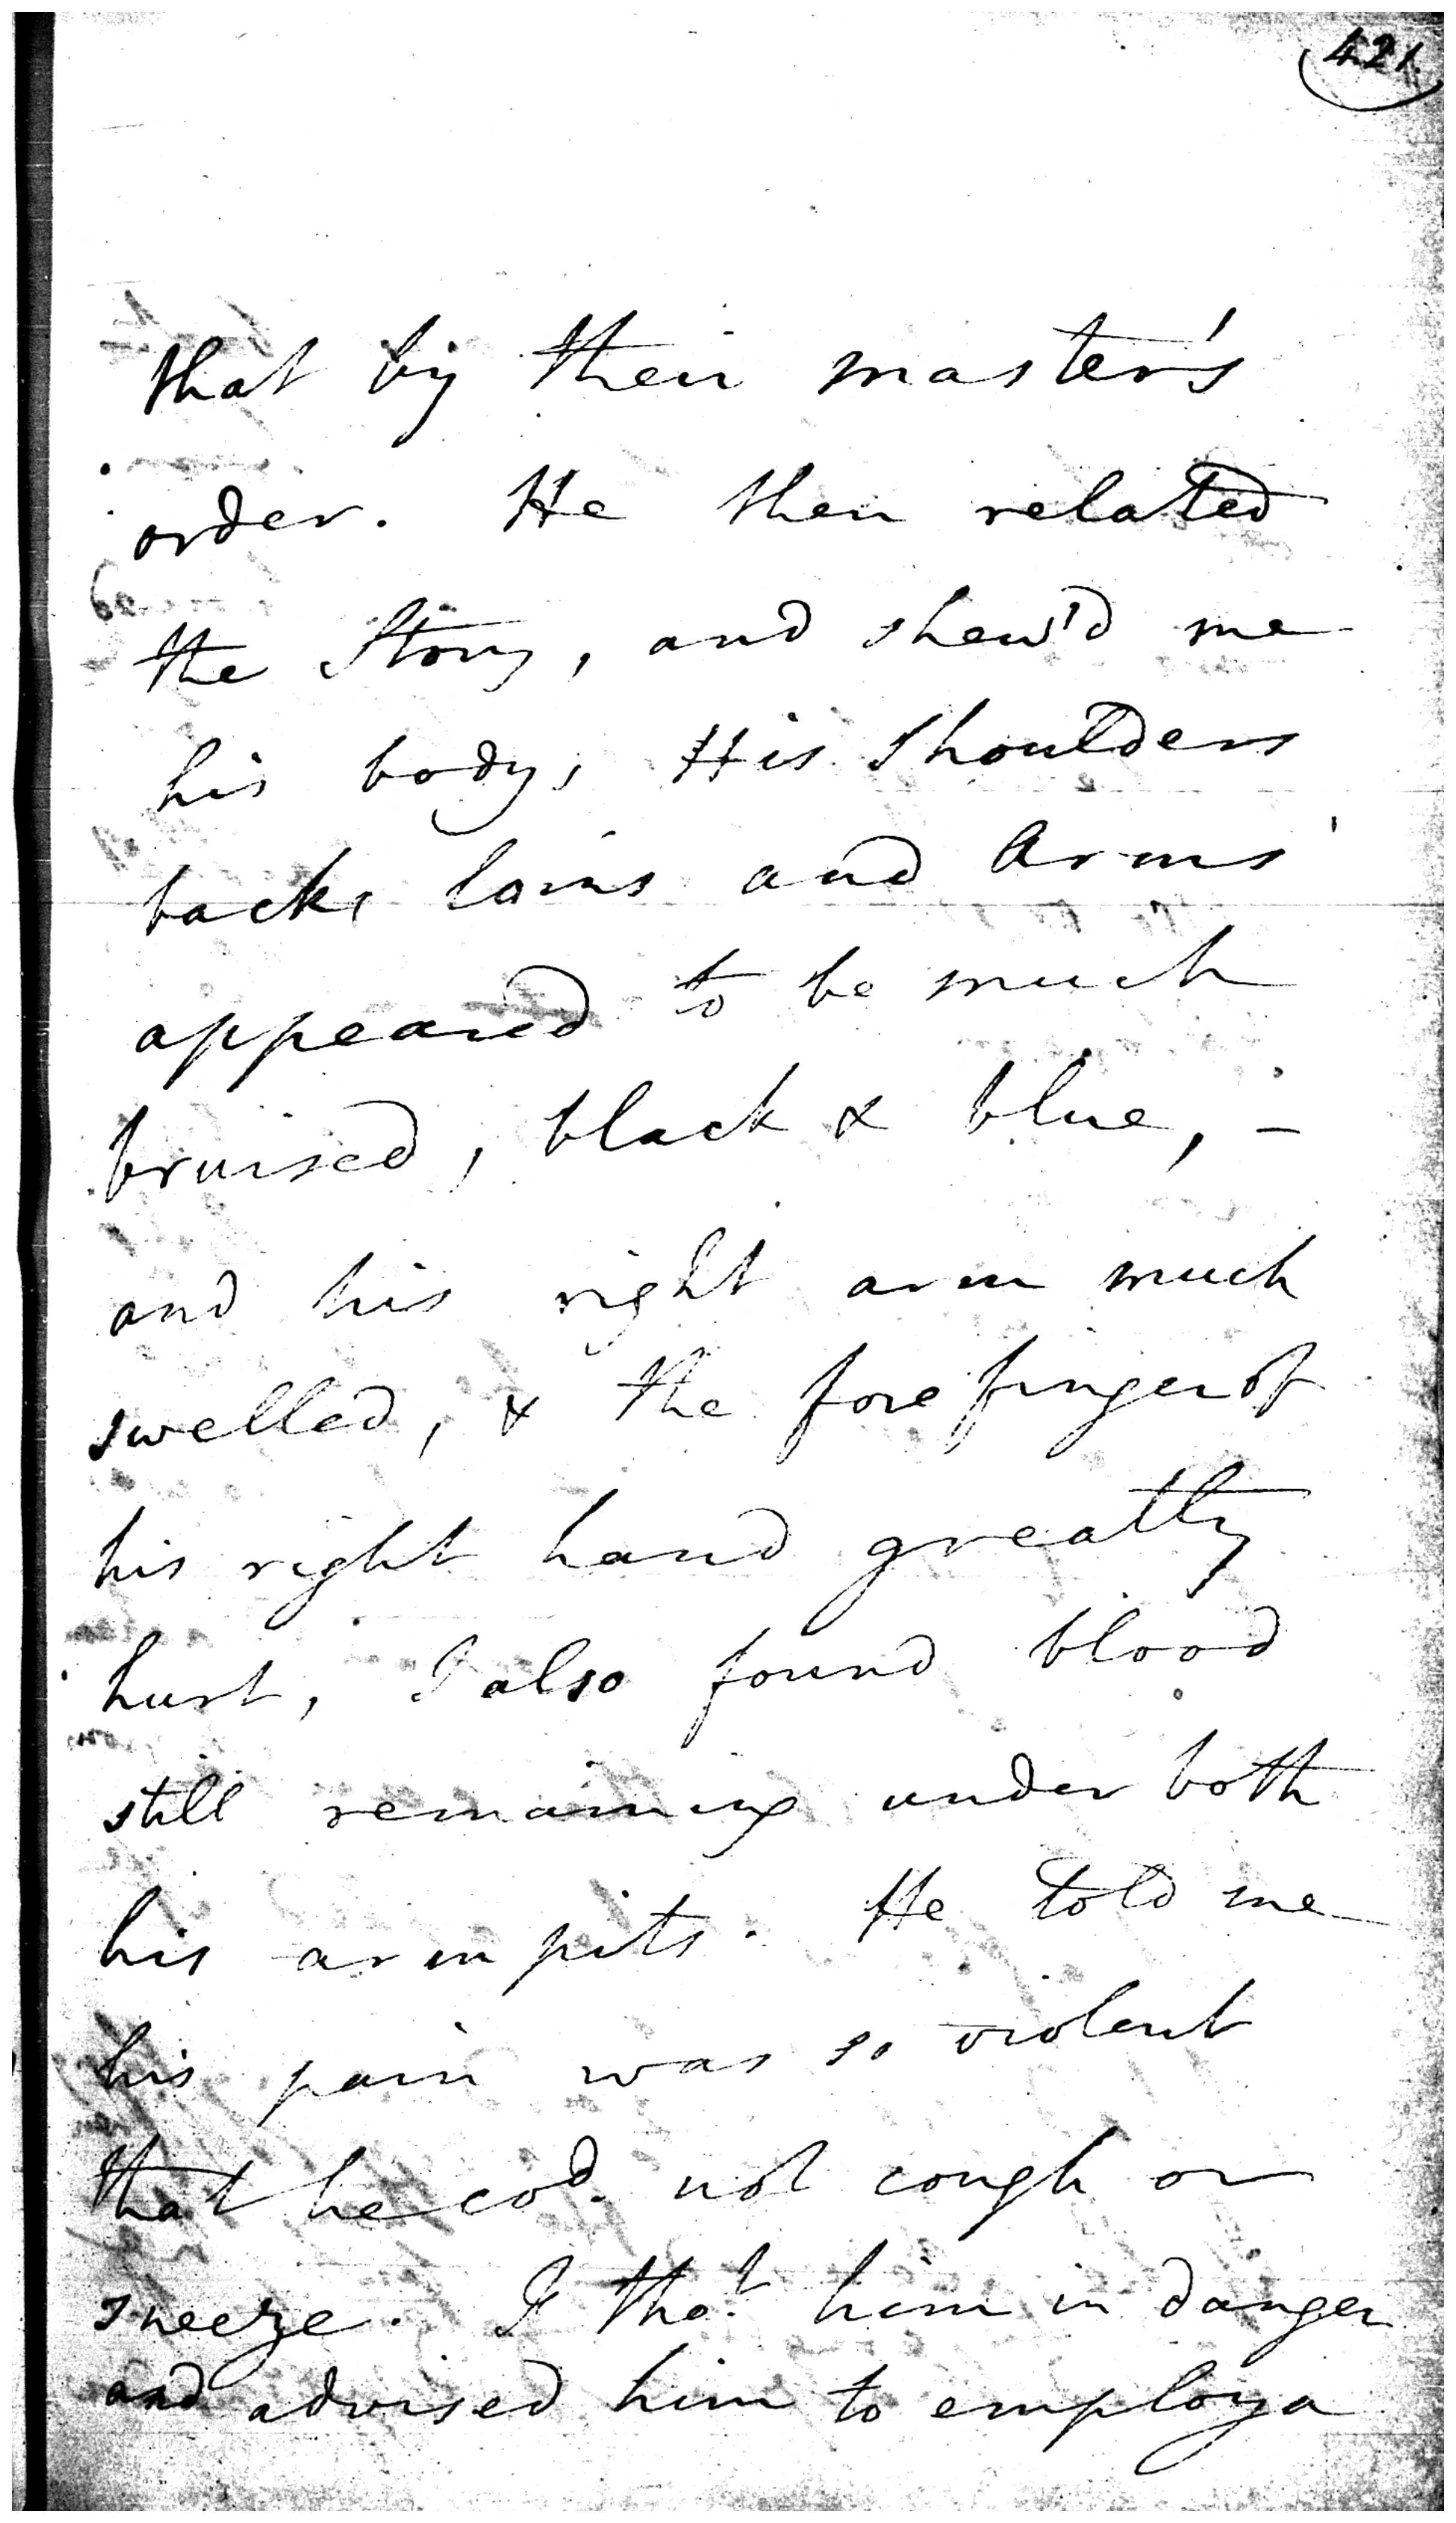 421.
that by their master's
order. He then related
the Story, and shew'd me
his body, His Shoulders
back, loins and Arms
appeared to be much
bruised, black & blue, -
and his right arm much
swelled, & the fore finger of
his right hand greatly
hurt, I also found blood
still remaining under both
his arm pits. He told me
his pain was so violent
that he cod. not cough or
sneeze. I thot. him in danger
and advised him to employ a